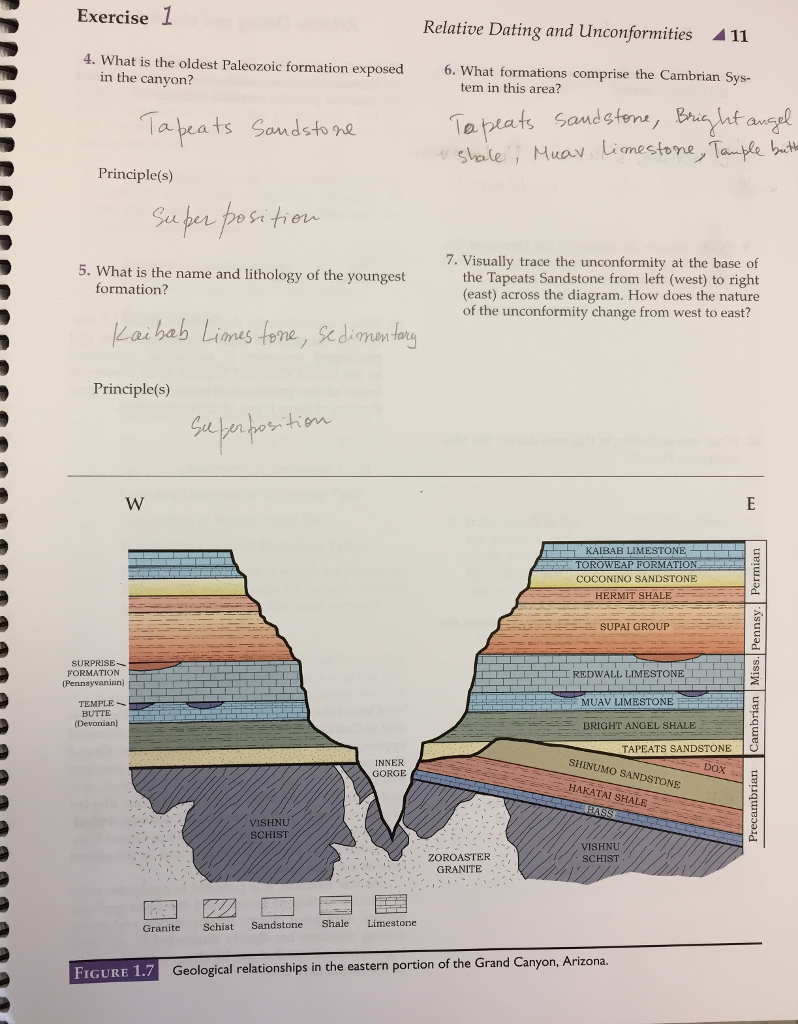 Exercise 1
Relative Dating and Unconformities ◢ 11
4. What is the oldest Paleozoic formation exposed
in the canyon?
Tapeats Sandstone
Principle(s)
Superposition
5. What is the name and lithology of the youngest
formation?
Kaibab Limestone, Sedimentary
Principle(s)
Superposition
6. What formations comprise the Cambrian Sys-
tem in this area?
Tapeats Sandstone, Bright angel
shale, Muav Limestone, Temple butt
7. Visually trace the unconformity at the base of
the Tapeats Sandstone from left (west) to right
(east) across the diagram. How does the nature
of the unconformity change from west to east?
W
E
KAIBAB LIMESTONE
TOROWEAP FORMATION
COCONINO SANDSTONE
HERMIT SHALE
SUPAI GROUP
REDWALL LIMESTONE
MUAV LIMESTONE
BRIGHT ANGEL SHALE
TAPEATS SANDSTONE
DOX
SHINUMO SANDSTONE
HAKATAI SHALE
BASS
VISHNU
SCHIST
Permian
Pennsy.
Miss.
Cambrian
Precambrian
SURPRISE
FORMATION
(Pennsyvanian)
TEMPLE
BUTTE
(Devonian)
INNER
GORGE
VISHNU
SCHIST
ZOROASTER
GRANITE
Granite
Schist
Sandstone
Shale
Limestone
FIGURE 1.7 Geological relationships in the eastern portion of the Grand Canyon, Arizona.